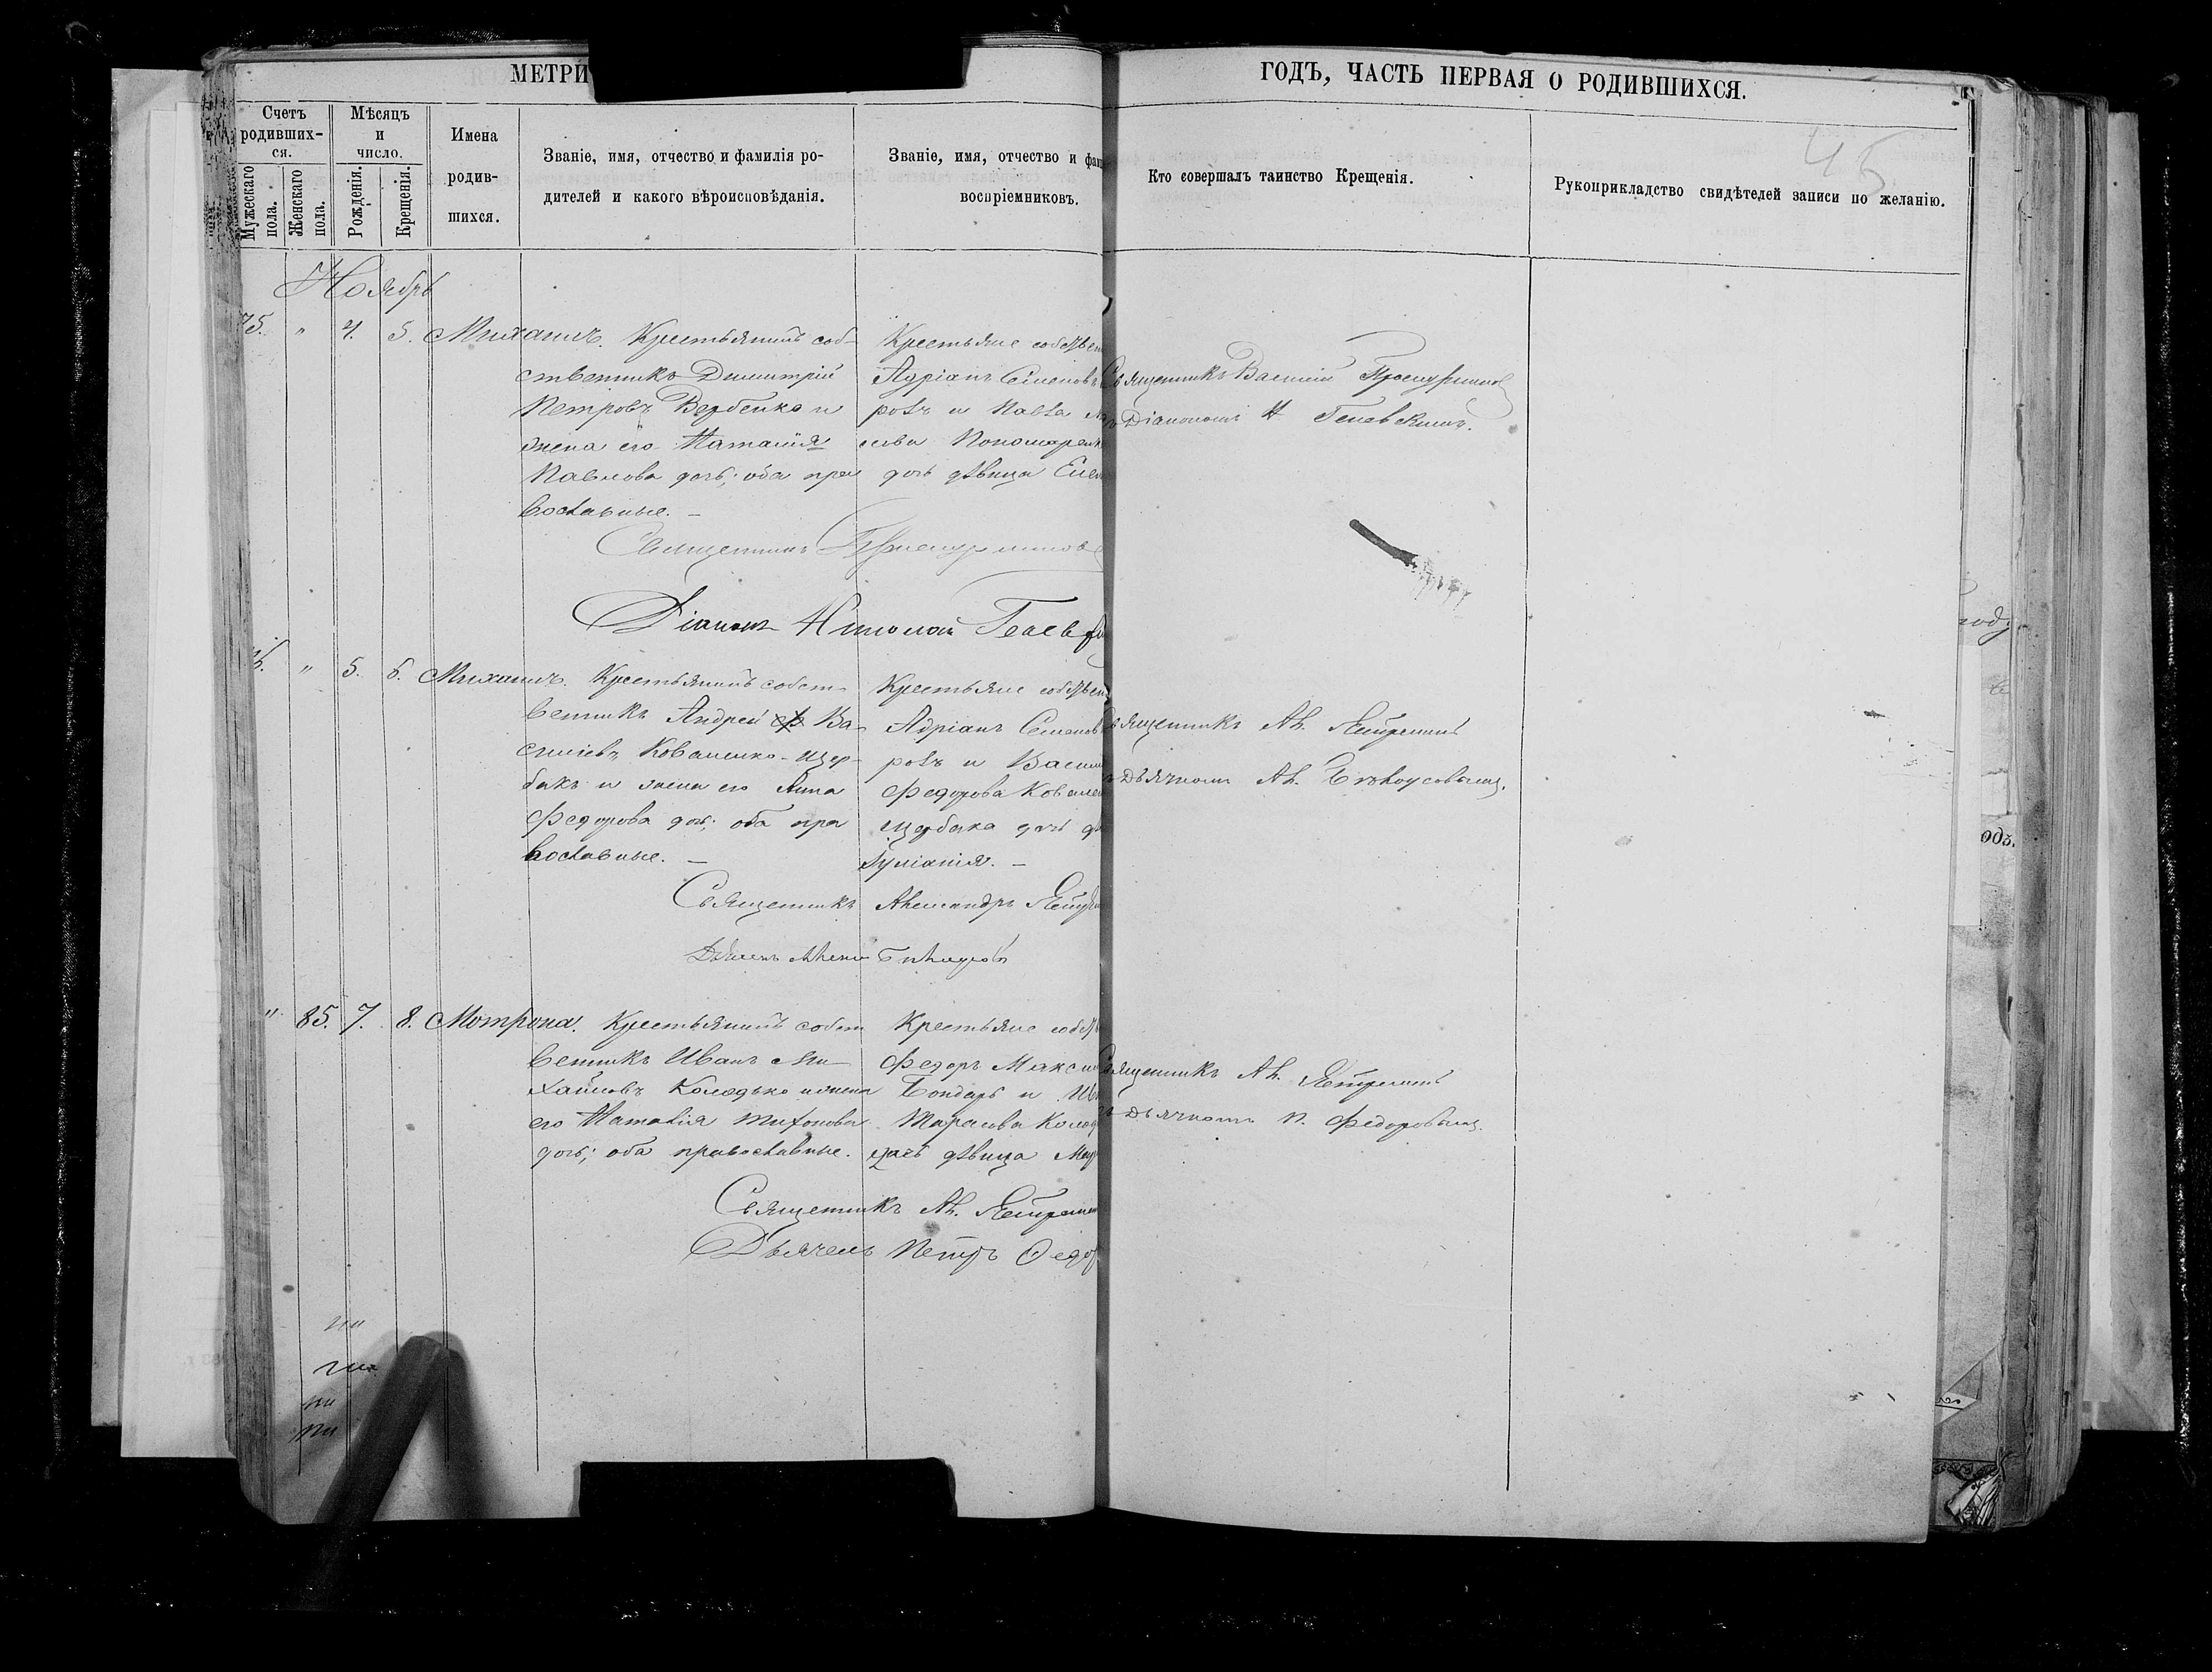 МЕТРИ
ГОДЪ, ЧАСТЬ ПЕРВАЯ О РОДИВШИХСЯ.
45
Счетъ родивших-ся.
Мужескаго пола.
Женскаго пола.
Мѣсяцъ и число.
Рожденія.
Крещенія.
Имена родив-шихся.
Званіе, имя, отчество и фамилія ро-
дителей и какого вѣроисповѣданія.
Званіе, имя, отчество и фами
воспріемниковъ.
Кто совершалъ таинство Крещенія.
Рукоприкладство свидѣтелей записи по желанію.
Ноябрь
75. " 4. 5. Михаилъ. Крестьянинъ соб-
ственникъ Димитрій
Петровъ Вербенко и
жена его Наталія
Павлова дочь; оба пра
вославные. –
Крестьяне собствен
Адріанъ Семеновъ
ровъ и Павла
Пономаренк
дочь дѣвица Елен
Священникъ Василій
Діакономъ Н
Священникъ
Діаконъ Николай
" 5. 6. Михаилъ. Крестьянинъ собст-
венникъ Андрей Ва-
силіевъ Коваленко-Щер-
бакъ и жена его Анна
Федорова дочь; оба пра
вославные. –
Крестьяне собствен
Адріанъ Семенов
ровъ и Васил
Федорова Ковален
щербака дочь дѣ
Іуліанія. –
Священникъ Ал.
Дьячкомъ Ал. Бѣлоусовымъ.
Священникъ Александръ
Дьячекъ Алексѣй Бѣлоусовъ
" 85. 7. 8. Мотрона. Крестьянинъ собст
венникъ Иванъ Ми-
хайловъ Колодько и жена
его Наталія Тихонова
дочь; оба православные.
Крестьяне собств
Федоръ Макси
Бондарь и
Тарасова Колод
дочь дѣвица
Священникъ Ал.
Дьячкомъ П. Федоровымъ.
Священникъ Ал.
Дьячекъ Петръ Федор
году
одъ.